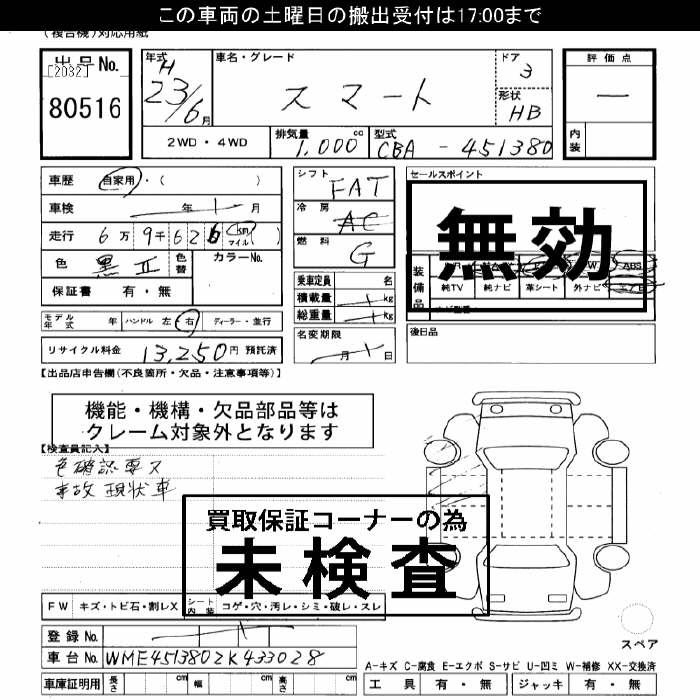 この車両の土曜日の搬出受付は17:00まで
(複合機)対応用紙
出品No.
[2032]
80516
年式
H
23/6月
車名・グレード
スマート
ドア
3
形状
HB
評価点
—
内装
2WD・4WD
排気量
1,000 cc
型式
CBA - 451380
車歴 自家用・( )
車検 年 月
走行 6万9千626 km マイル ( )
色 黒Ⅱ 色替 カラーNo.
保証書 有・無
モデル年式 年 ハンドル 左 右 ディーラー・並行
リサイクル料金 13,250円 預託済
シフト FAT
冷房 AC
燃料 G
乗車定員 名
積載量 kg
総重量 kg
名変期限
月 日
セールスポイント
無効
装備品
ABS
純TV 純ナビ 革シート 外ナビ
後日品
【出品店申告欄(不良箇所・欠品・注意事項等)】
機能・機構・欠品部品等は
クレーム対象外となります
【検査員記入】
色確認要ス
事故 現状車
買取保証コーナーの為
未検査
FW キズ・トビ石・割レX シート内装 コゲ・穴・汚レ・シミ・破レ・スレ
登録No.
車台No. WME4513802K433028
車庫証明用 長さ cm 幅 cm 高さ cm
スペア
A-キズ C-腐食 E-エクボ S-サビ U-凹ミ W-補修 XX-交換済
工具 有・無 ジャッキ 有・無